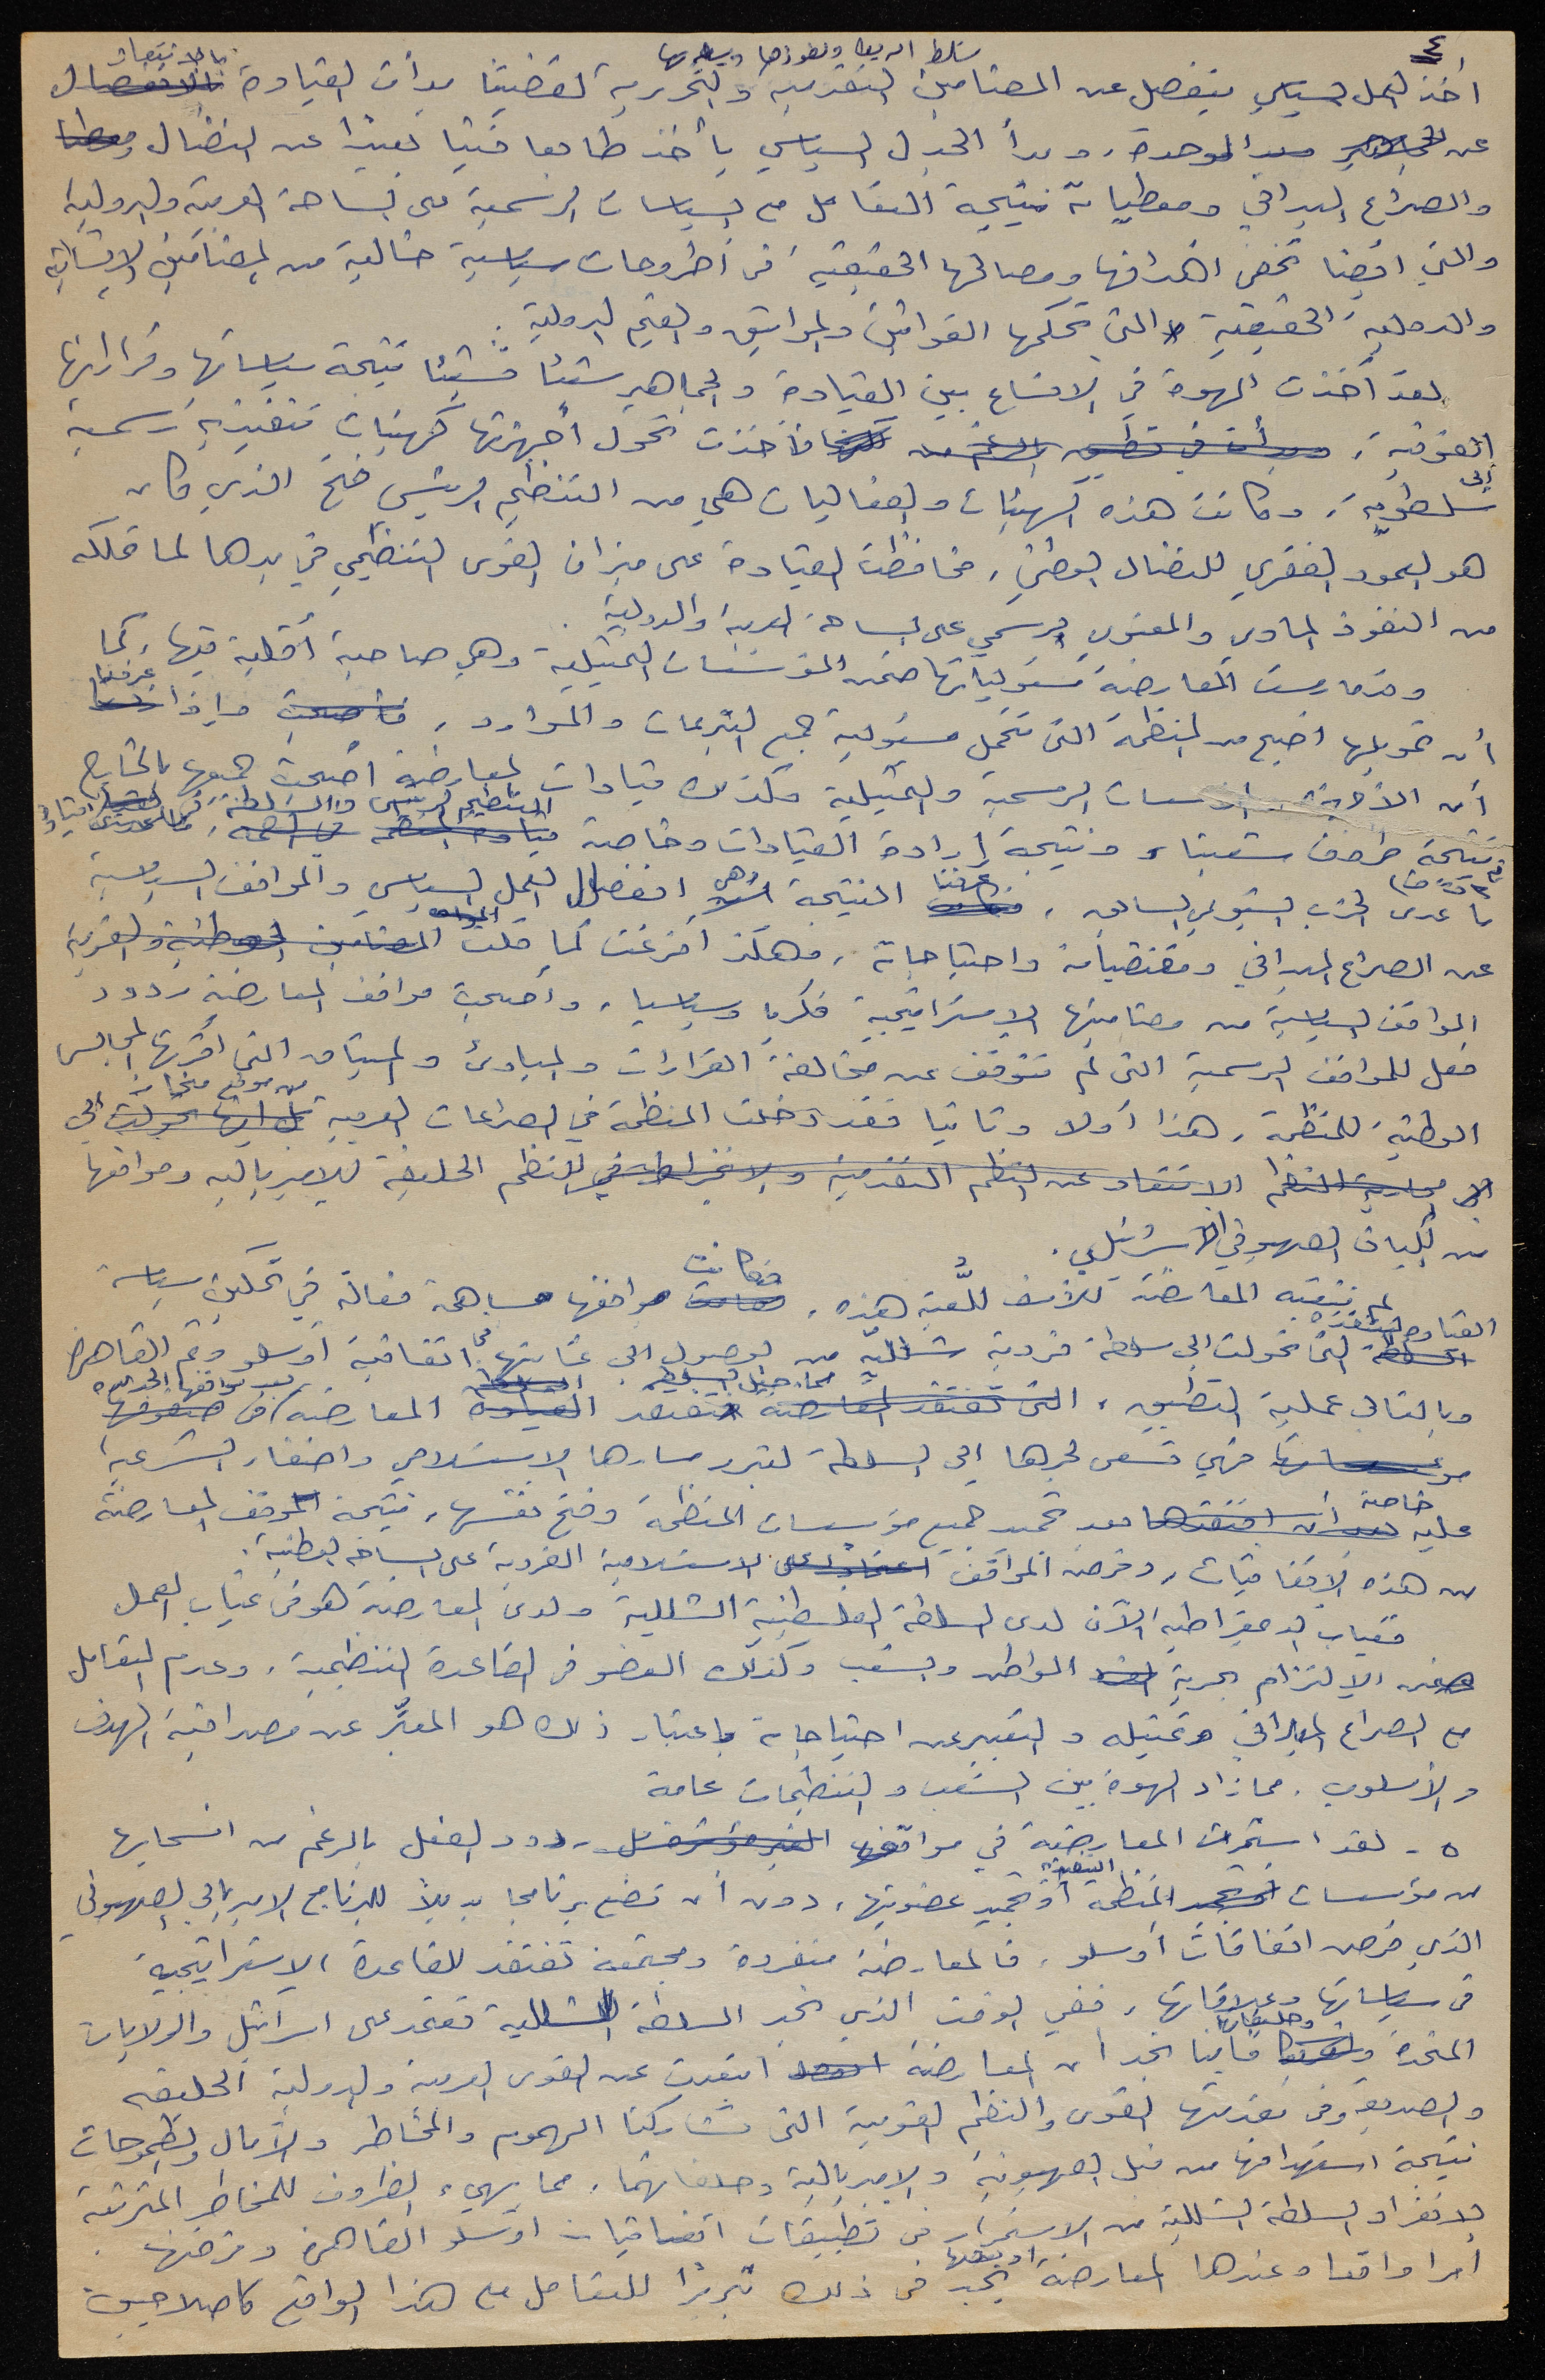 ٤
أخذ العمل السياسي ينفصل عن المضامين التقدمية والتحررية لقضيتنا بدأت القيادة بالابتعاد
عن الجماهير والوحدة، وبدأ الجدل السياسي يأخذ طابعا فنيا بعيدا عن النضال
والصراع الميداني ومعطياته نتيجة التعامل مع السياسات الرسمية على الساحة العربية والدولية
والتي أيضا تخفي أهدافها ومصالحها الحقيقية في أطروحات سياسية خالية من المضامين الإنسانية
والدولية الحقيقية والتي تحكمها القوانين والمواثيق والقيم الدولية.
لقد أخذت الهوة في الاتساع بين القيادة والجماهير شيئا فشيئا نتيجة سياساتها وقراراتها
الفوقية، فأخذت تحول أجهزتها كهيئات تنفيذية رسمية
إلى سلطوية، وكانت هذه الهيئات والفعاليات هي من التنظيم الرئيسي فتح الذي كان
هو العمود الفقري للنضال الوطني، فحافظت القيادة على ميزان القوى التنظيمي في يدها لما تملكه
من النفوذ المادي والمعنوي الرسمي على الساحة العربية والدولية.
وقد مارست المعارضة مسئولياتها ضمن المؤسسات التمثيلية وهي صاحبة أقلية فيها، كما
أن تمويلها أصبح من المنظمة التي تتحمل مسئولية جمع التبرعات والموارد، وإذا عرفنا
أن الأجهزة والمؤسسات الرسمية والتمثيلية وكذلك قيادات المعارضة أصبحت جميعها بالخارج
نتيجة ظروف شعبنا، ونتيجة إرادة القيادات وخاصة التنظيم الرئيسي والسلطة
ما عدى الحزب الشيوعي السابق، عرفنا النتيجة وهي انفصال العمل السياسي والمواقف السياسية
عن الصراع الميداني ومقتضياته واحتياجاته، وهكذا أفرغت كما قلت
المواقف السياسية من مضامينها الاستراتيجية فكريا وسياسيا، وأصبحت مواقف المعارضة ردود
فعل للمواقف الرسمية التي لم تتوقف عن مخالفة القرارات والمبادئ والميثاق التي أقرتها المجالس
الوطنية للمنظمة، هذا أولا وثانيا فقد دخلت المنظمة في الصراعات العربية من موقع منحاز إلى
النظم الحليفة للإمبريالية ومواقفها
من الكيان الصهيوني الإسرائيلي.
لم تنتبه المعارضة للأسف للعبة هذه، فكانت مواقفها مساهمة فعالة في تمكين سياسة
القيادة المتنفذة التي تحولت إلى سلطة فردية شللية من الوصول إلى غايتها في اتفاقية أوسلو وثم القاهرة
وبالتالي عملية التطبيق،
فهي تسعى لجرها إلى السلطة لتبرر مسارها الاستسلامي وإضفاء الشرعية
عليه خاصة بعد تجميد جميع مؤسسات المنظمة وفتح نفسها، نتيجة لموقف المعارضة
من هذه الاتفاقيات، وفرض المواقف الاستسلامية الفردية على الساحة الوطنية.
فغياب الديمقراطية الآن لدى السلطة الفلسطينية الشللية ولدى المعارضة هو في غياب العمل
ضمن الالتزام بحرية المواطن والشعب وكذلك العضو في القاعدة التنظيمية، وعدم التعامل
مع الصراع الميداني وتمثيله والتعبير عن احتياجاته باعتبار ذلك هو المعبّر عن مصداقية الهدف
والأسلوب، مما زاد الهوة بين الشعب والتنظيمات عامة
٥- لقد استمرت المعارضة في مواقف ردود الفعل بالرغم من انسحابها
من مؤسسات المنظمة أو تجميد عضويتها، دون أن تضع برنامجا بديلاً للبرنامج الامبريالي الصهيوني
الذي فرض اتفاقات أوسلو، فالمعارضة منفردة ومجتمعة تفتقد للقاعدة الاستراتيجية
في سياساتها وعلاقاتها، ففي الوقت الذي نجد السلطة الشللية تعتمد على اسرائيل والولايات
المتحدة وحليفاتها فإننا نجد أن المعارضة ابتعدت عن القوى العربية والدولية الحليفة
والصديقة وفي مقدمتها القوى والنظم القومية التي تشاركنا الهموم والمخاطر والآمال والطموحات
نتيجة استهدافها من قبل الصهيونية والامبريالية وحلفائهما، مما يهيء الظروف للمخاطر المترتبة
لانفراد السلطة الشللية من الاستمرار في تطبيقات اتفاقيات أوسلو القاهرة وفرضها
أمرا واقعا وعندها المعارضة أو بعضها تجد في ذلك تبريرا للتعامل مع هذا الواقع كإصلاحيين